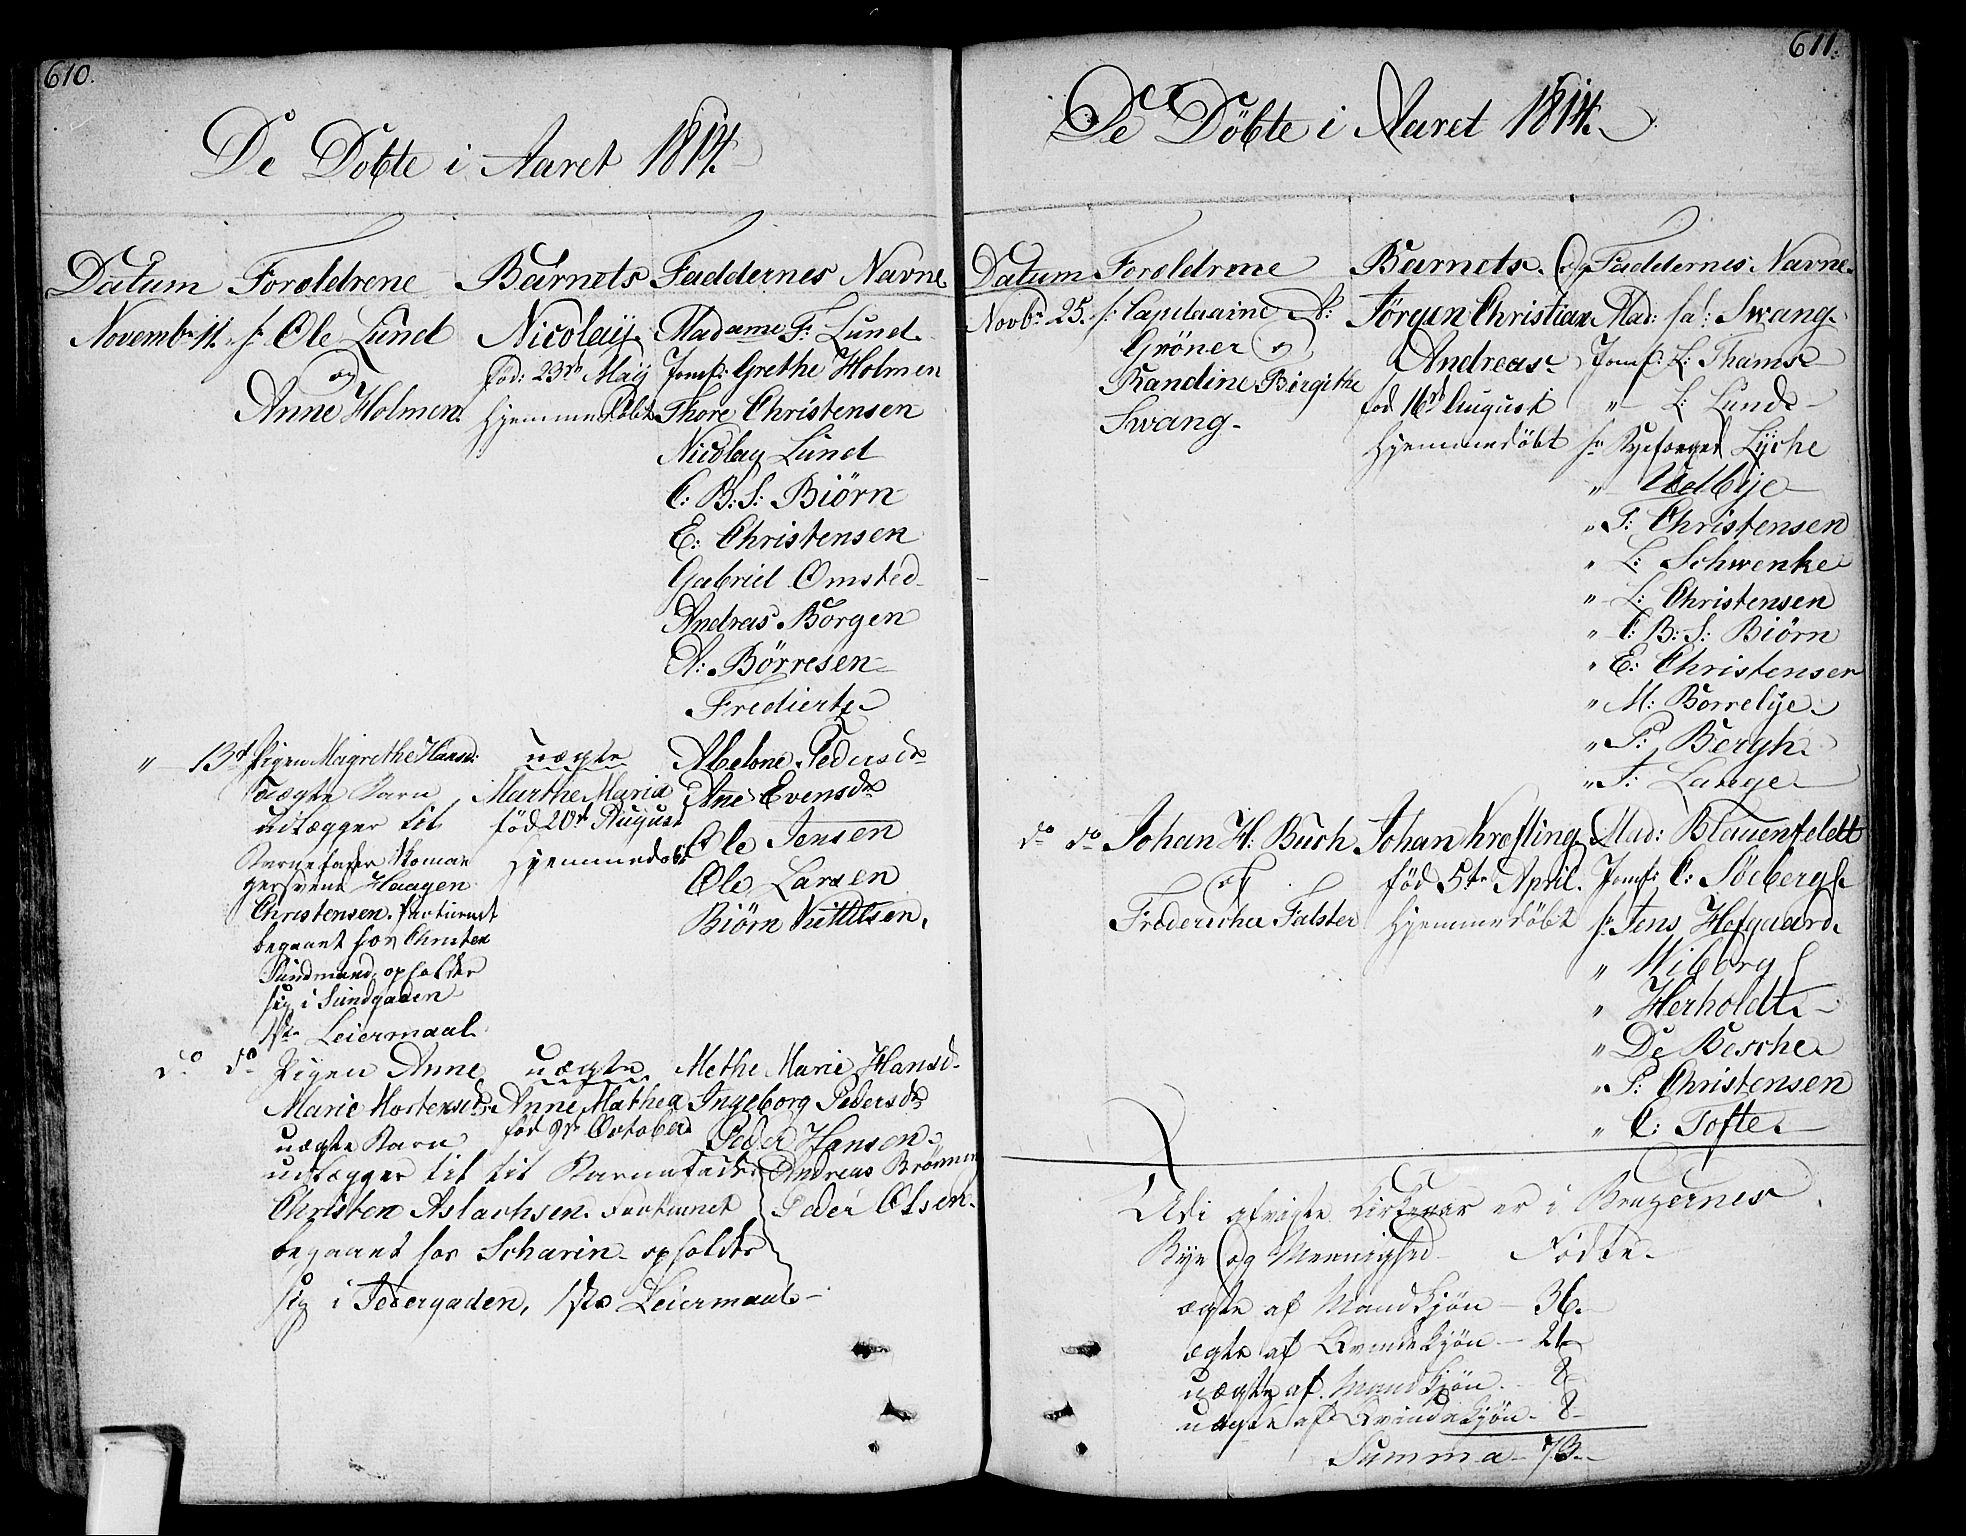 610.
De Döbte i Aaret 1814.
Datum Foroldrene Barnets Faddernes Navne
Novembr 11. hr Ole Lund
og
Anne Holmen.
Nicolaij.
föd: 23de Maij
Hjemmedöbt
Madame F: Lund
Jomf: Grethe Holmen
Thore Christensen
Nicolay Lund
C: B: S: Biörn
E: Christensen
Gabriel Omsted
Andreas Borgen
A: Börresen
Fredierts
" 13d Pigen Magrethe Hansd:
uægte Barn
udlægger til
Barnefader
gersvend Haagen
Christensen. Partiernet
begaaet hos Christen
Sundmand, opholder
sig i Sundgaden
1ste Leiermaal
uægte
Marthe Maria
föd 20de August
Hjemmedöbt
Abelone Pedersdr
Ane Evensdr
Ole Jensen
Ole Larsen
Biörn Kittilsen.
do do Pigen Anne
Marie Mortensdr
uægte Barn
udlægger til til Barnefader
Christen Aslachsen. Fortiernet
begaaet hos Scharin opholder
sig i Tedergaden, 1ste Leiermaal
uægte
Anne Mathea
föd 9de October
Methe Marie Hansd.
Ingeborg Pedersdr
Peder Hansen
Andreas Brönnen
Peder Olsen.
611.
De Döbte i Aaret 1814.
Datum Foroldrene Barnets og Faddernes Navne
Novbr 25. hr Capitaaine N:
Gröner og
Randine Birgithe
Swang
Jörgen Christian
Andreas
föd 16de August
Hjemmedöbt
Mad: sal: Swang
Jomf: L: Thams
" L: Lund
hr Lyche
" Uelbije
" T: Christensen
" L: Schwenke
" L: Christensen
" C: B: S: Biörn
" E: Christensen
" M: Borrebye
" P: Bergh
" T: Lange
do do Johan H: Buch
og
Fredericha Falster
Johan Kræfting
föd 5te April.
Hjemmedöbt
Mad: Blauenfeldt
Jomf: C: Söeberg
hr Jens Hofgaard
" Wiborg
" Herholdt
" De Besche
" P: Christensen
" C: Tofte
Udi afvigte Kirkeaar er i Bragernes
Bye og Mennighed Födte
ægte af Mandkjön 36.
ægte af Qvindekjön 21
uægte af Mandkjön. 8
uægte af Qvindekjön. 8
Summa 73.